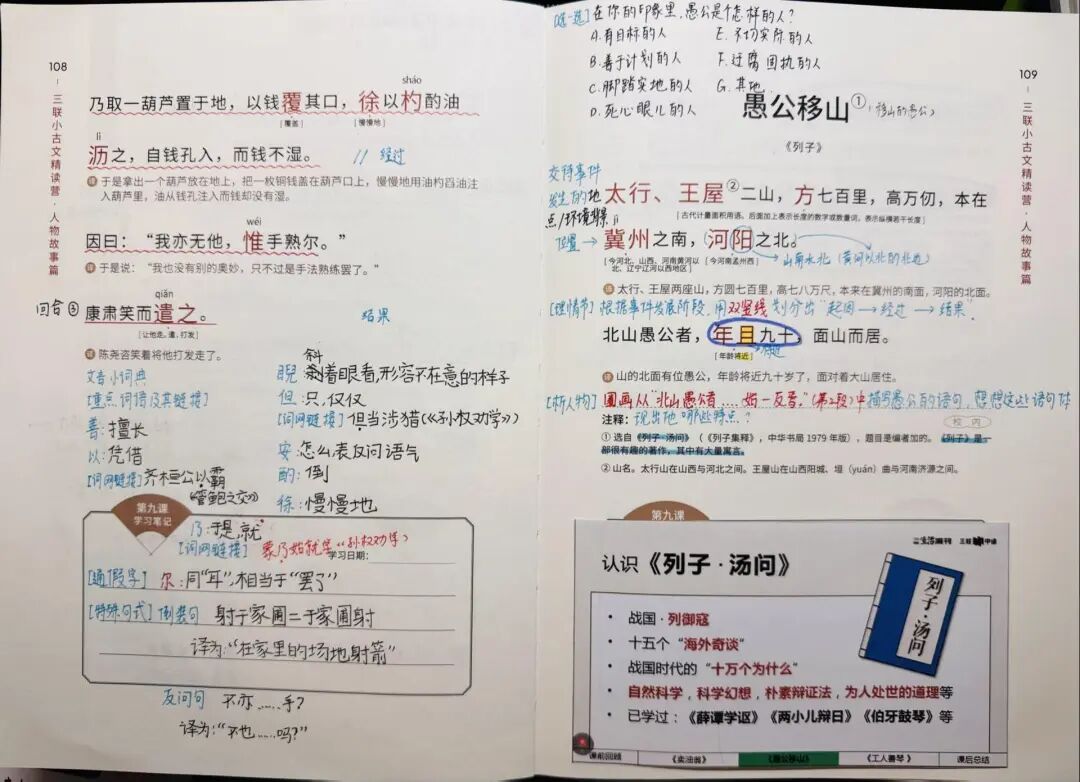 108
三联小古文精读营·人物故事篇
sháo
乃取一葫芦置于地，以钱覆其口，徐以杓酌油
[覆盖] [慢慢地]
lì
沥之，自钱孔入，而钱不湿。 // 经过
译 于是拿出一个葫芦放在地上，把一枚铜钱盖在葫芦口上，慢慢地用油杓舀油注
入葫芦里，油从钱孔注入而钱却没有湿。
wéi
因曰：“我亦无他，惟手熟尔。”
译 于是说：“我也没有别的奥妙，只不过是手法熟练罢了。”
qiǎn
回合③ 康肃笑而遣之。 结果
[让他走。遣，打发]
译 陈尧咨笑着将他打发走了。
文言小词典
[重点词语及其链接]
善：擅长
以：凭借
[词网链接] 齐桓公以霸
《管鲍之交》
斜
睨：斜着眼看，形容不在意的样子
但：只，仅仅
[词网链接] 但当涉猎《孙权劝学》
安：怎么，表反问语气
酌：倒
徐：慢慢地
第九课
学习笔记
乃：于是，就
[词网链接] 蒙乃始就学《孙权劝学》
学习日期：
[通假字] 尔：同“耳”，相当于“罢了”
[特殊句式] 倒装句 射于家圃=于家圃射
译为：“在家里的场地射箭”
反问句 不亦……乎？
译为：“不也……吗？”
[选一选] 在你的印象里，愚公是个怎样的人？
A.有目标的人 E.不切实际的人
B.善于计划的人 F.迂腐固执的人
C.脚踏实地的人 G.其他
D.死心眼儿的人
109
三联小古文精读营·人物故事篇
愚公移山① （移山的愚公）
《列子》
交待事件
发生的地
点/环境背景
太行、王屋②二山，方七百里，高万仞，本在
[古代计量面积用语。后面加上表示长度的数字或数量词，表示纵横若干长度]
jì
位置→ 冀州之南，河阳之北。
[今河北、山西、河南黄河以北、辽宁辽河以西地区] [今河南孟州西]
山南水北（黄河以北的北边）
译 太行、王屋两座山，方圆七百里，高七八万尺，本来在冀州的南面，河阳的北面。
[理情节] 根据事件发展阶段，用双竖线划分出“起因→经过→结果”。
北山愚公者，年且九十，面山而居。
[年龄将近] 将近
译 山的北面有位愚公，年龄将近九十岁了，面对着大山居住。
[析人物] 圈画从“北山愚公者……始一反焉。”（第2段）中描写愚公的语句，想想这些语句体
现出他哪些特点？
注释：
校内
① 选自《列子·汤问》（《列子集释》，中华书局 1979 年版），题目是编者加的。《列子》是一
部很有趣的著作，其中有大量寓言。
② 山名。太行山在山西与河北之间。王屋山在山西阳城、垣（yuán）曲与河南济源之间。
第九课
三联生活周刊 三联中读
认识《列子·汤问》
• 战国·列御寇
• 十五个“海外奇谈”
• 战国时代的“十万个为什么”
• 自然科学，科学幻想，朴素辩证法，为人处世的道理等
• 已学过：《薛谭学讴》《两小儿辩日》《伯牙鼓琴》等
列子·汤问
课前回顾 《卖油翁》 《愚公移山》 《工人善琴》 课后总结